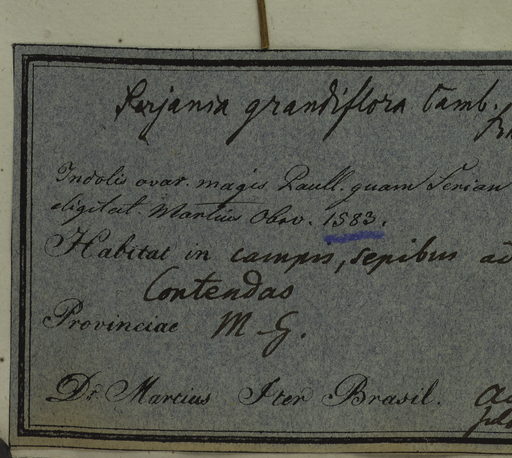 Serjania grandiflora Camb.
Indolis ovar. magis Paull. quam Serian
digitat. Martius Obsv. 1583.
Habitat in campis, sepibus ad
Contendas
Provinciae M. G.
Dr. Martius Iter Brasil.